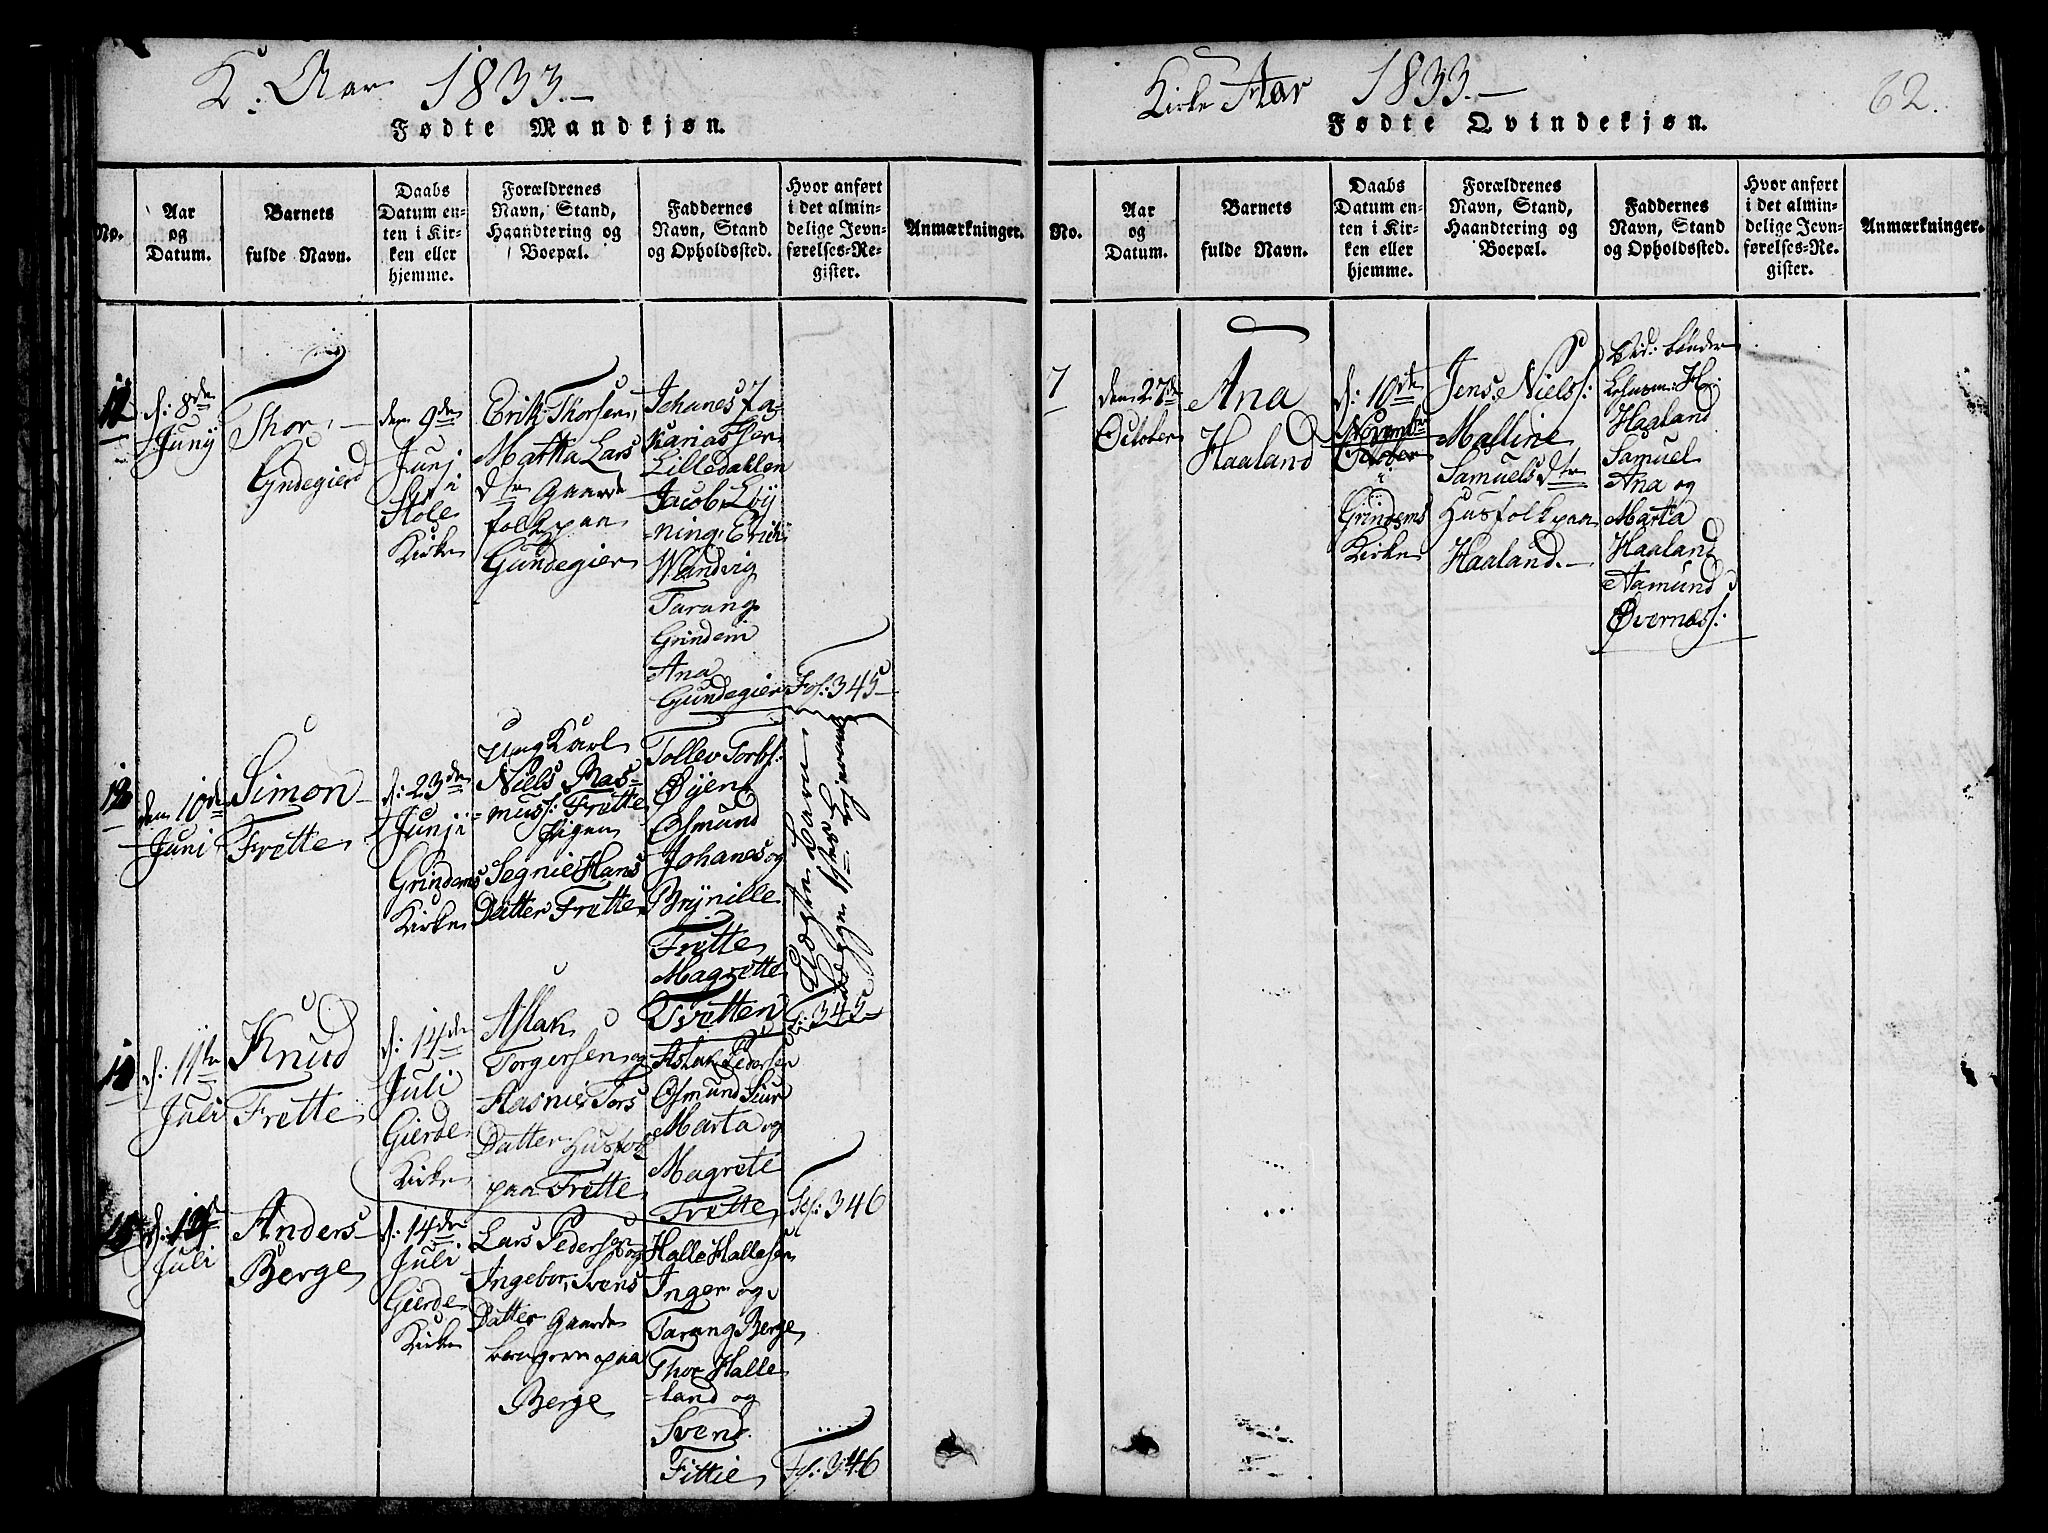 K: Aar 1833.—
Fødte Mandkjøn.
No.
Aar
og
Datum.
Barnets
fulde Navn.
Daabs
Datum en-
ten i Kir-
ken eller
hjemme.
Forældrenes
Navn, Stand,
Haandtering og
Boepæl.
Faddernes
Navn, Stand
og Opholdssted.
Hvor anført
i det almin-
delige Jevn-
førelses-Re-
gister.
Anmærkninger.
12
d: 8de
Junij
Thor,—
Gndegierd
dem 9de
Junj
i
Stole
Kirke
Erik Thorsen,
Martha Lars
Dtr Gaarde
folk paa
Gundegier
Johanes Za-
karias ser
Lilledahlen
Jacob Løy
ning, Erik
Wandvig
Tarang
Grindem
Ana
Gundegier
Fol: 345—
13
dem 10de
Juni
Simon—
Frette
d: 23de
Junji
Grindems
Kirke
Ung Karl
Niels Ras-
muss: Frette
Pigen
Segnie Hans
Datter Frette
Tollev Torbs:
Øyen
Osmund
Johanes og
Brynille
Frette
Magrette
Tvetten
Uægte Barn
begges 1ste Lejermaal
F: 345—
14
d: 11te
Juli
Knud
Frette
d: 14de
Juli
Gierde
Kirke
Aslak
Torgersen og
Aasnie Tors
Datter Husfolk
paa Frette
Aslak Pedersen
Osmund Siur
Marta og
Magrete
Frette
Fol: 346
15
d: 12te
Juli
Anders—
Berge
d: 14de
Juli
Gierde
Kirke
Lars Pederson og
Ingebor, Svens
Datter Gaarde
brugern paa
Berge
Halle Hallesen
Inger og
Tarang Berge
Thor Halle
-land og
Svend
Fittie
Fol: 346
Kirke Aar 1833.—
62.
Fødte Qvindekjøn.
No.
Aar
og
Datum.
Barnets
fulde Navn.
Daabs
Datum en-
ten i Kir-
ken eller
hjemme.
Forældrenes
Navn, Stand,
Haandtering og
Boepæl.
Faddernes
Navn, Stand
og Opholdssted.
Hvor anført
i det almin-
delige Jevn-
førelses-Re-
gister.
Anmærkninger.
7
dem 27de
October
Ana
Haaland
d: 10de
November
October
i
Grindems
Kirke
Jens Niels:
Malline
Samuels dtr
Husfolk paa
Haaland.—
Bønder
Haaland
Samuel
Ana og
Marta
Haaland
Aamund
Øvernæs: